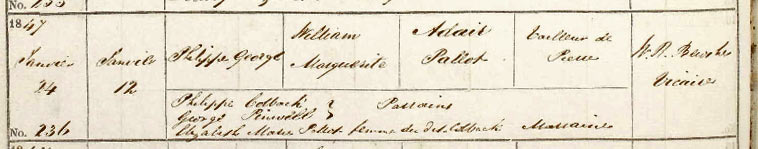 1847
Janvier 24
Janvier 12
Philippe George
William
Marguerite
Adair
Pallot
Tailleur de
Pierre
Vicaire
Philippe Colback
George } Parrains
Elizabeth Marie Pallot femme du dit Colback Marraine
No. 236